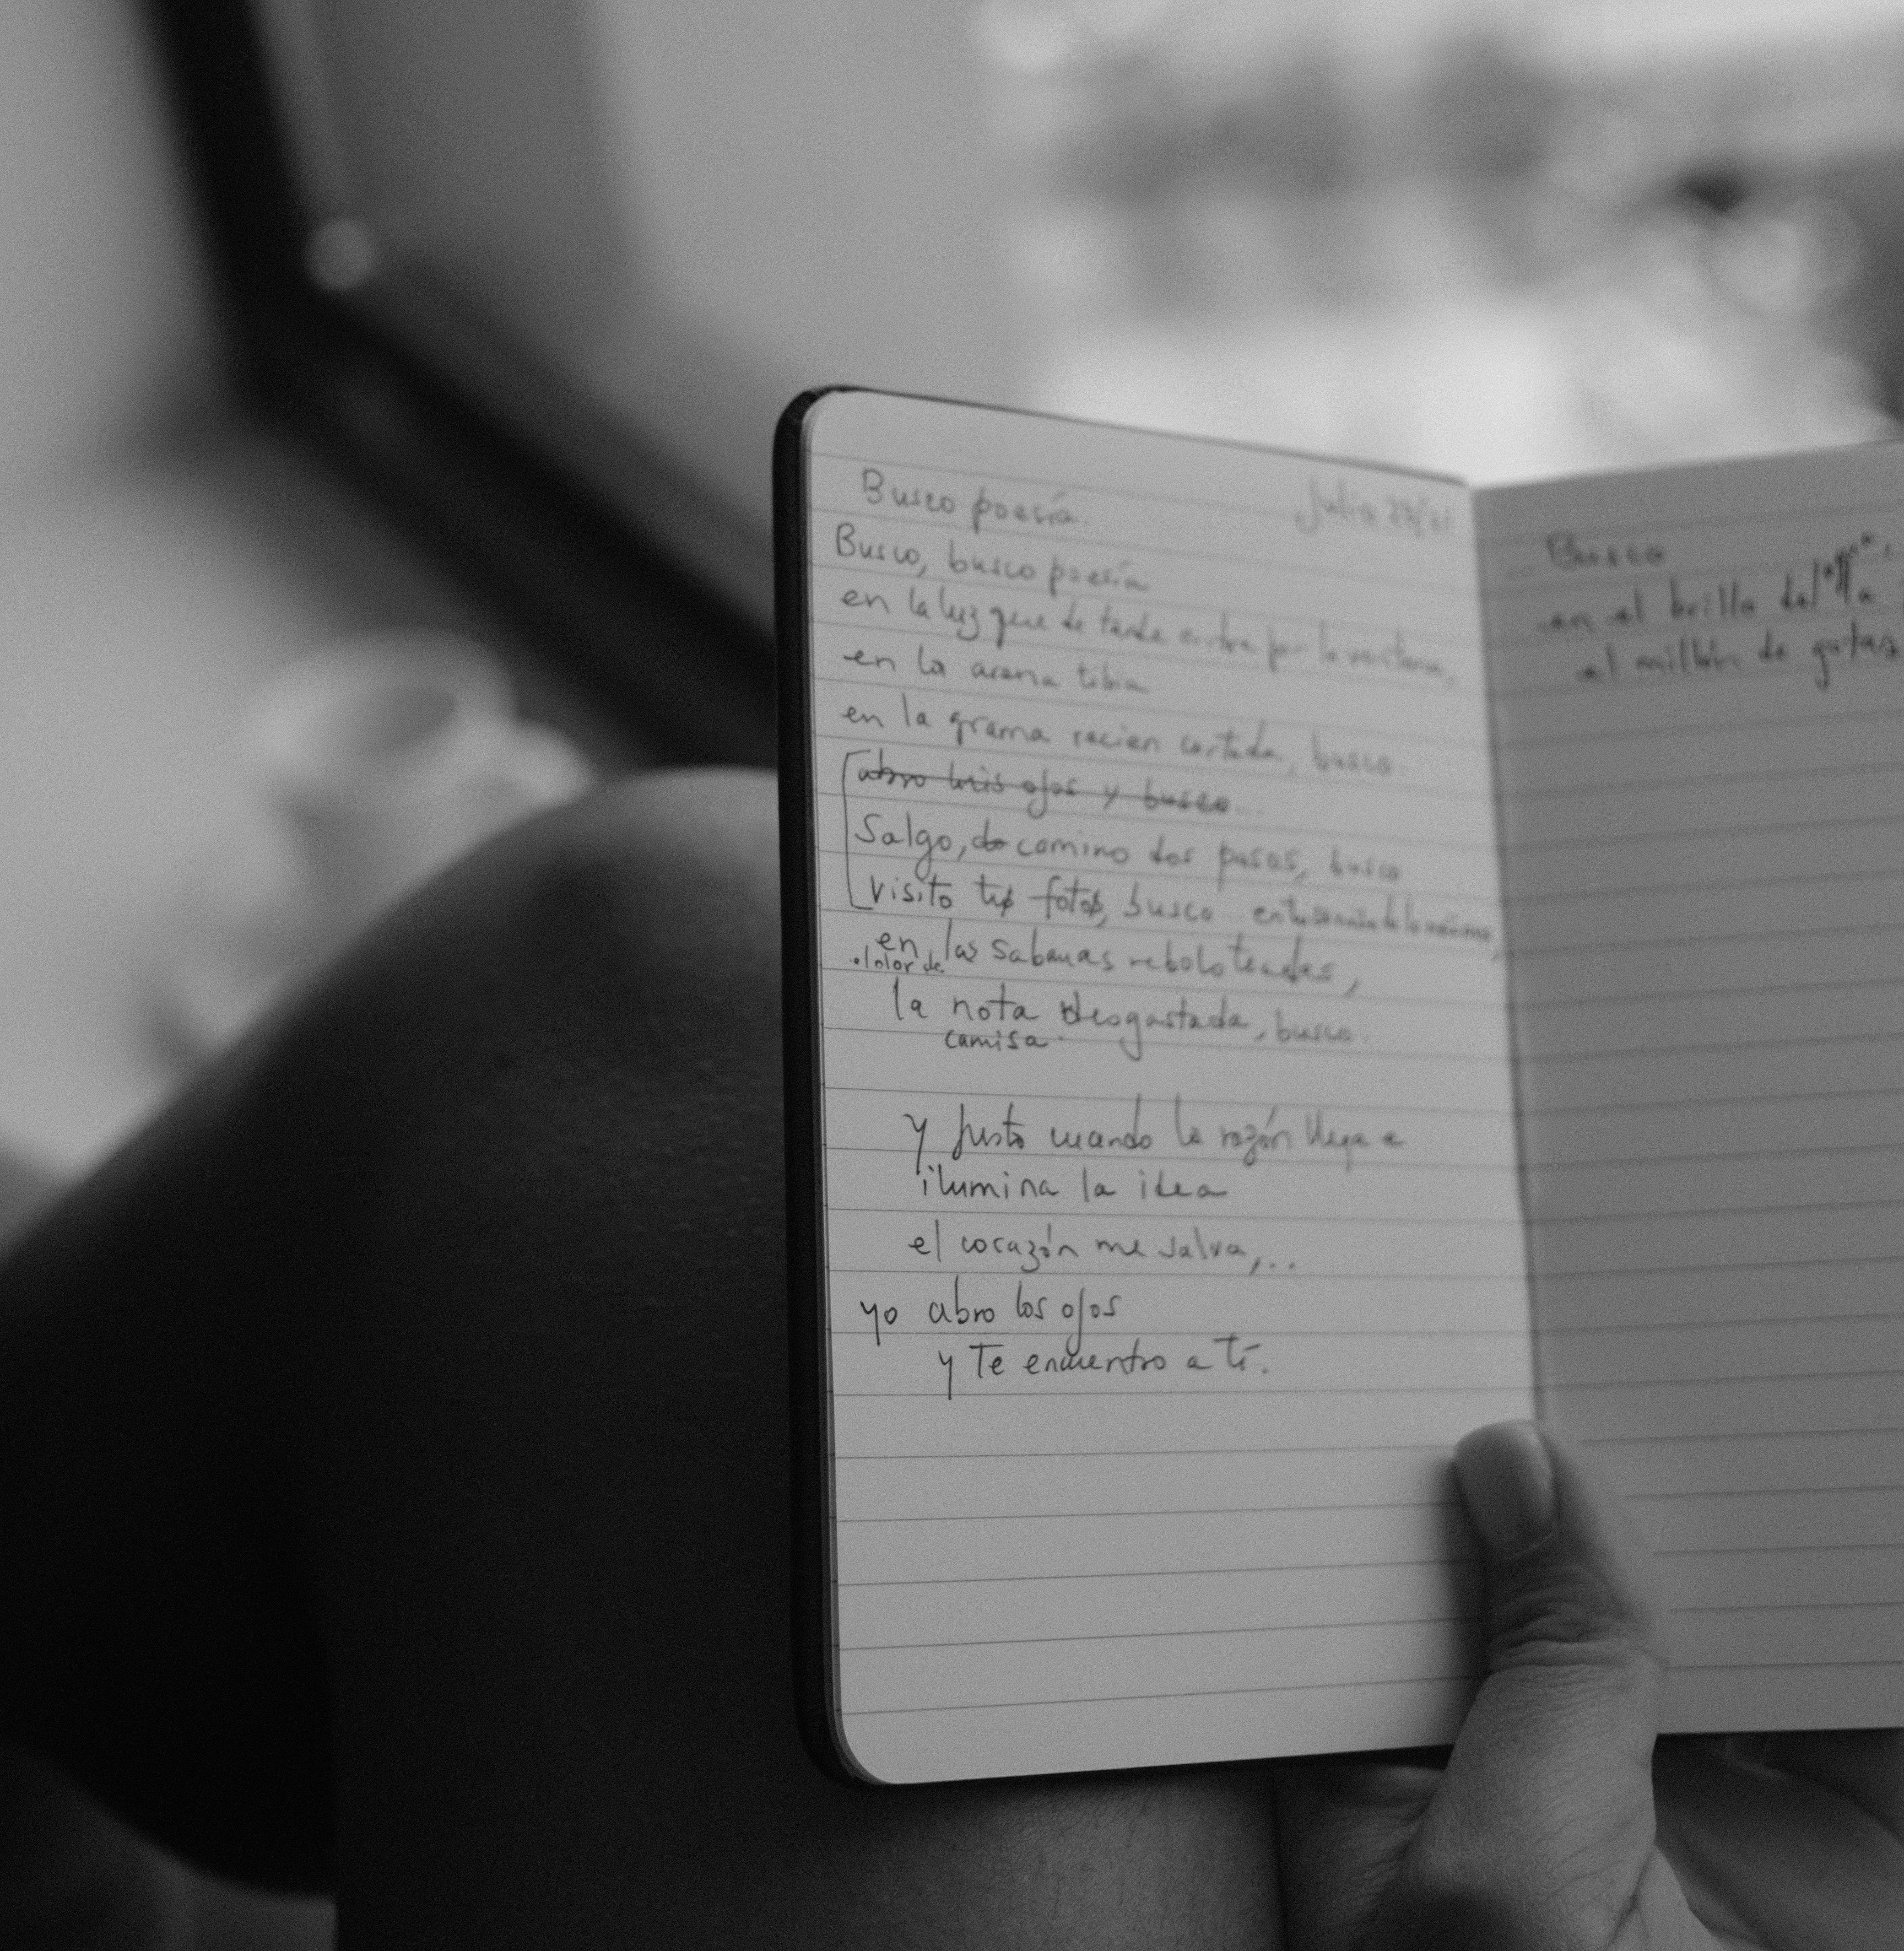 Busco poesía.
Julio 23/
Busco, busco poesía
en la luz que de tarde entra por la ventana,
en la arena tibia
en la grama recien cortada, busco.
abro mis ojos y busco...
Salgo, camino dos pasos, busco
visito tu foto, busco en tu sonrisa de la
en las sabanas reboloteadas,
el olor de
la nota desgastada, busco.
camisa.
y justo cuando la razón llega e
ilumina la idea
el corazón me salva,...
yo abro los ojos
y te encuentro a tí.
... Busco
en el brillo del
la
el millón de gotas